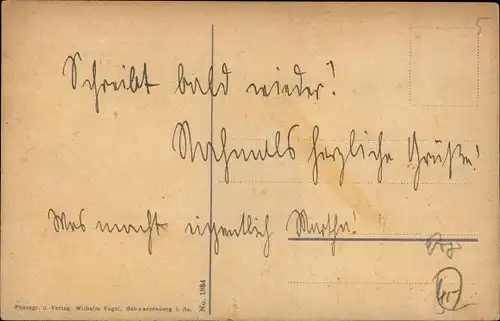 Schreibt bald wieder!
Nochmals herzliche Grüße!
Was macht eigentlich Martha!
Photogr. u. Verlag. Wilhelm Vogel, Schwarzenberg i. Sa.
No. 1884
5